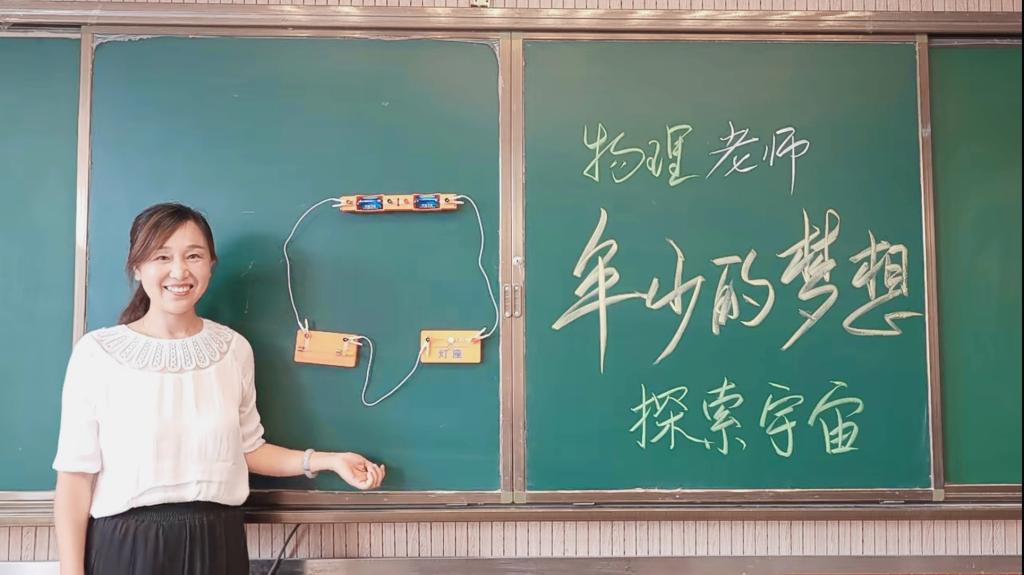 灯座
物理老师
年少的梦想
探索宇宙